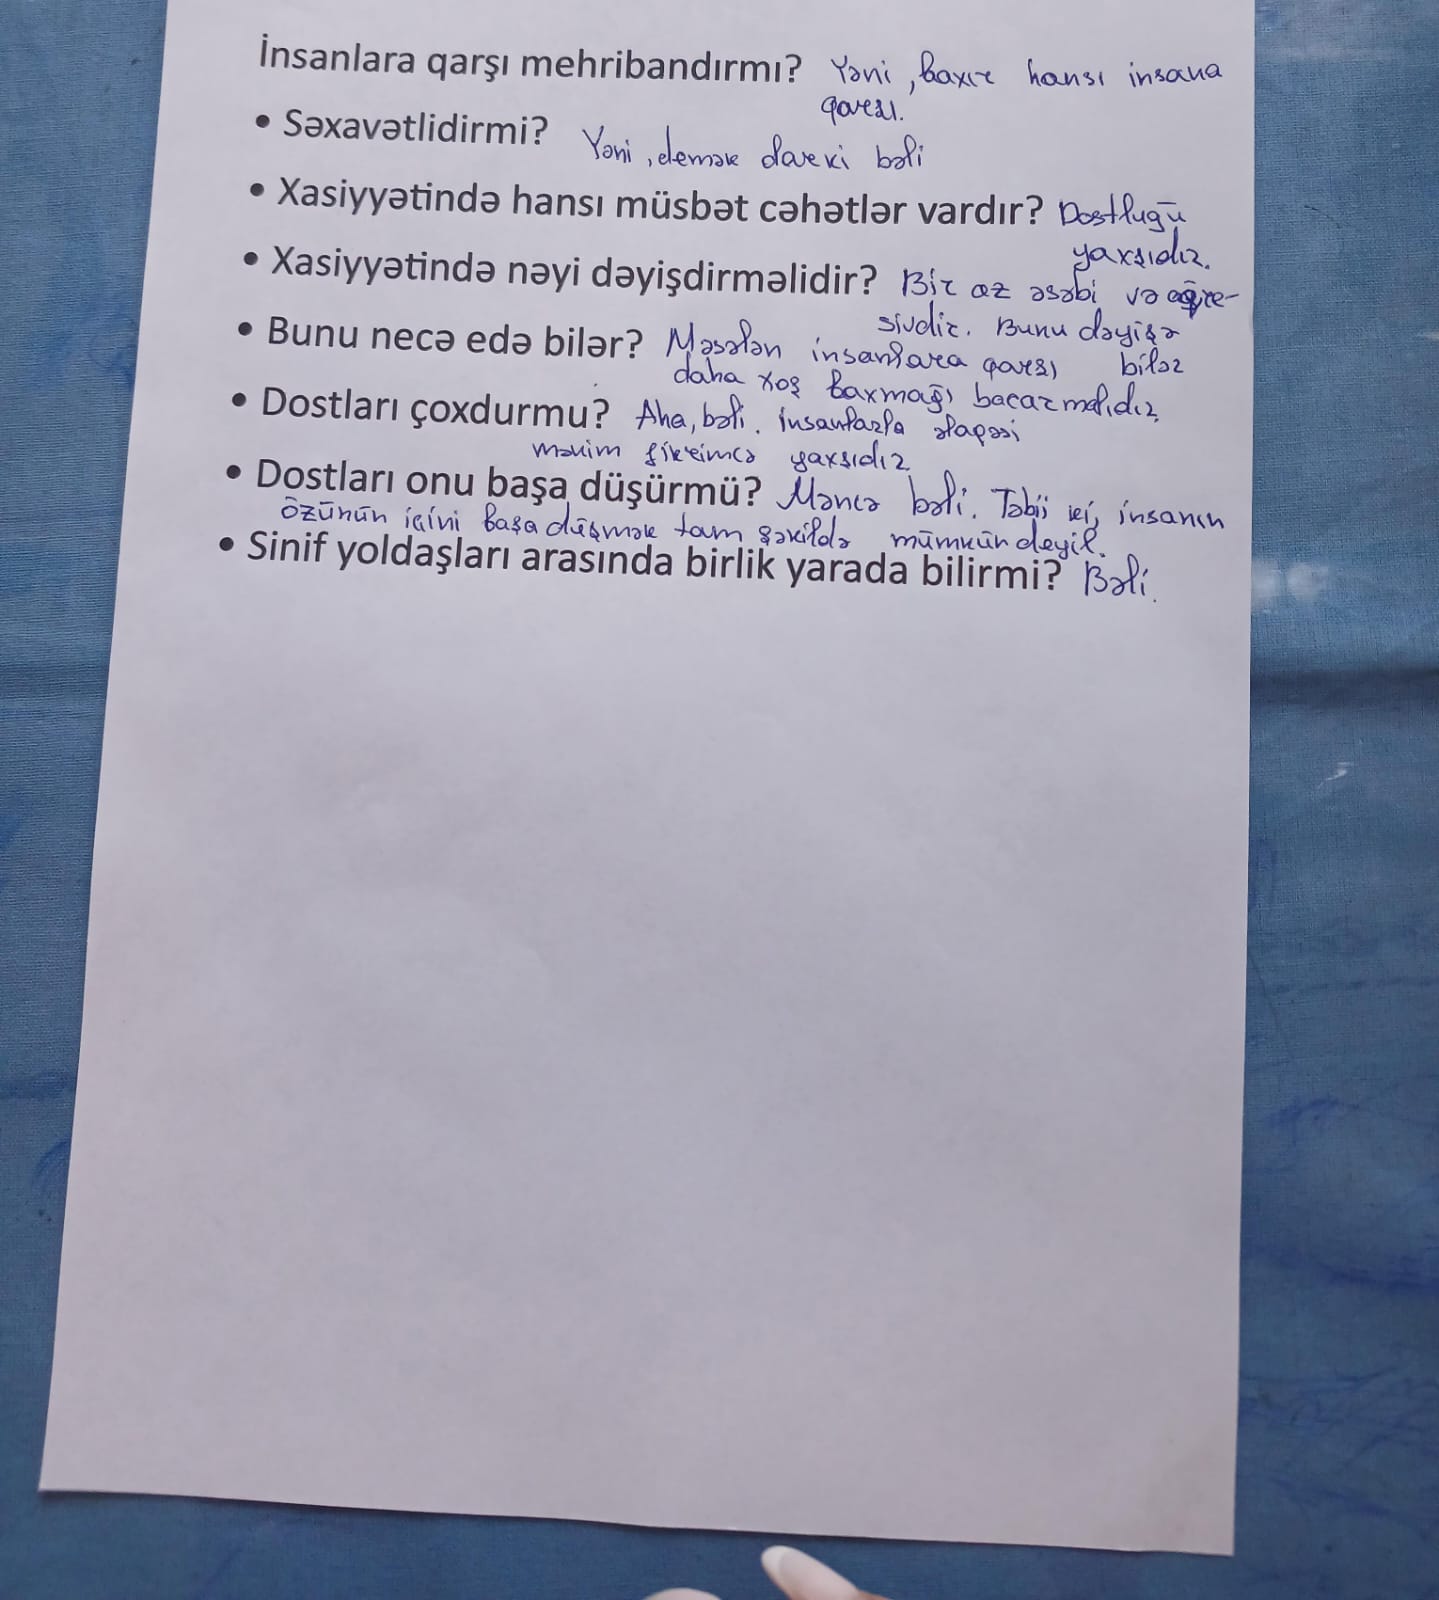 İnsanlara qarşı mehribandırmı? Yəni, baxır hansı insana
qarşı.
• Səxavətlidirmi? Yəni, demək olar ki bəli
• Xasiyyətində hansı müsbət cəhətlər vardır? Dostluğu
yaxşıdır.
• Xasiyyətində nəyi dəyişdirməlidir? Bir az əsəbi və aqre-
sivdir. Bunu dəyişə
bilər
• Bunu necə edə bilər? Məsələn insanlara qarşı
daha xoş baxmağı bacarmalıdır.
• Dostları çoxdurmu? Aha, bəli. İnsanlarla əlaqəsi
mənim fikrimcə yaxşıdır.
• Dostları onu başa düşürmü? Məncə bəli. Təbii ki, insanın
özünün içini başa düşmək tam şəkildə mümkün deyil.
• Sinif yoldaşları arasında birlik yarada bilirmi? Bəli.